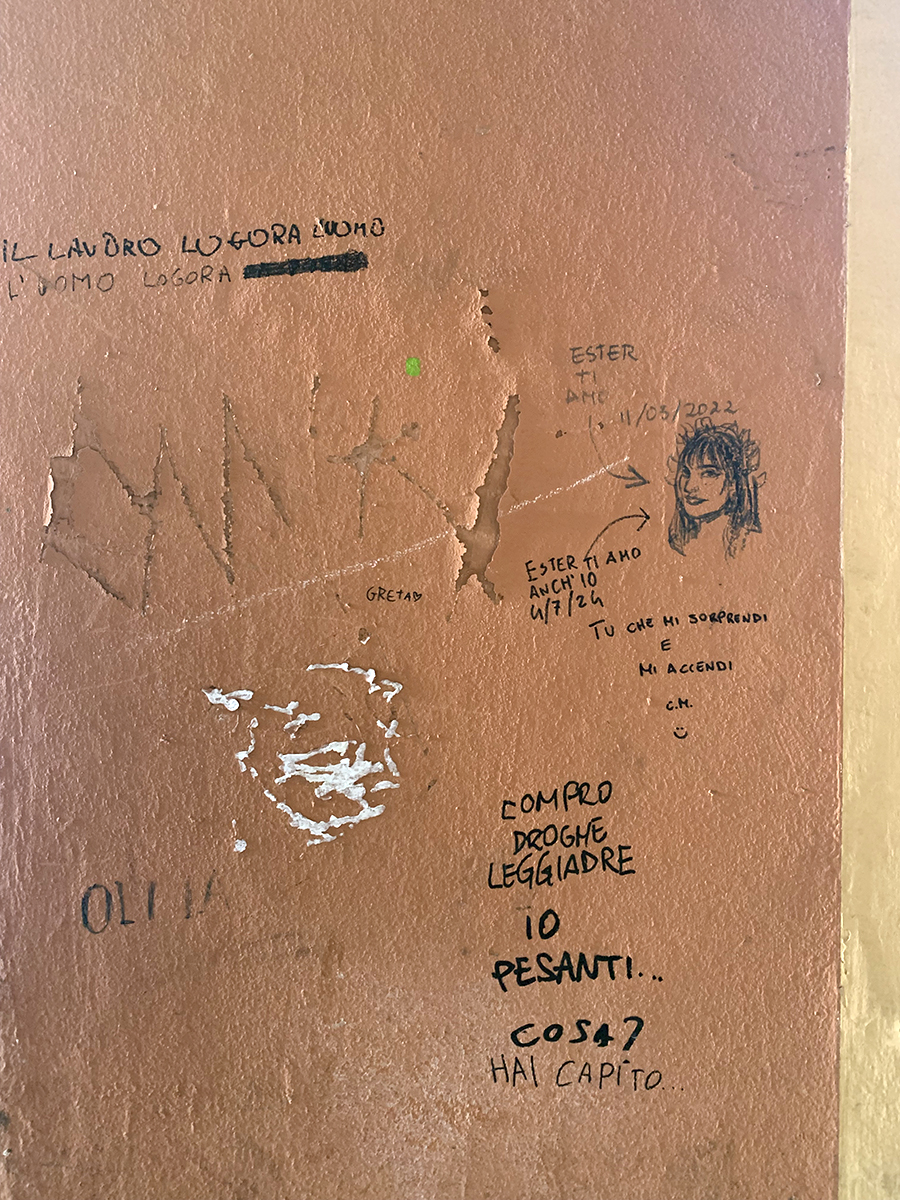 IL LAVORO LOGORA L'UOMO
L'UOMO LOGORA
ESTER
TI
AMO
11/03/2022
GRETA
ESTER TI AMO
ANCH'IO
4/7/24
TU CHE MI SORPRENDI
E
MI ACCENDI
C.M.
COMPRO
DROGHE
LEGGIADRE
IO
PESANTI...
COSA?
HAI CAPITO...